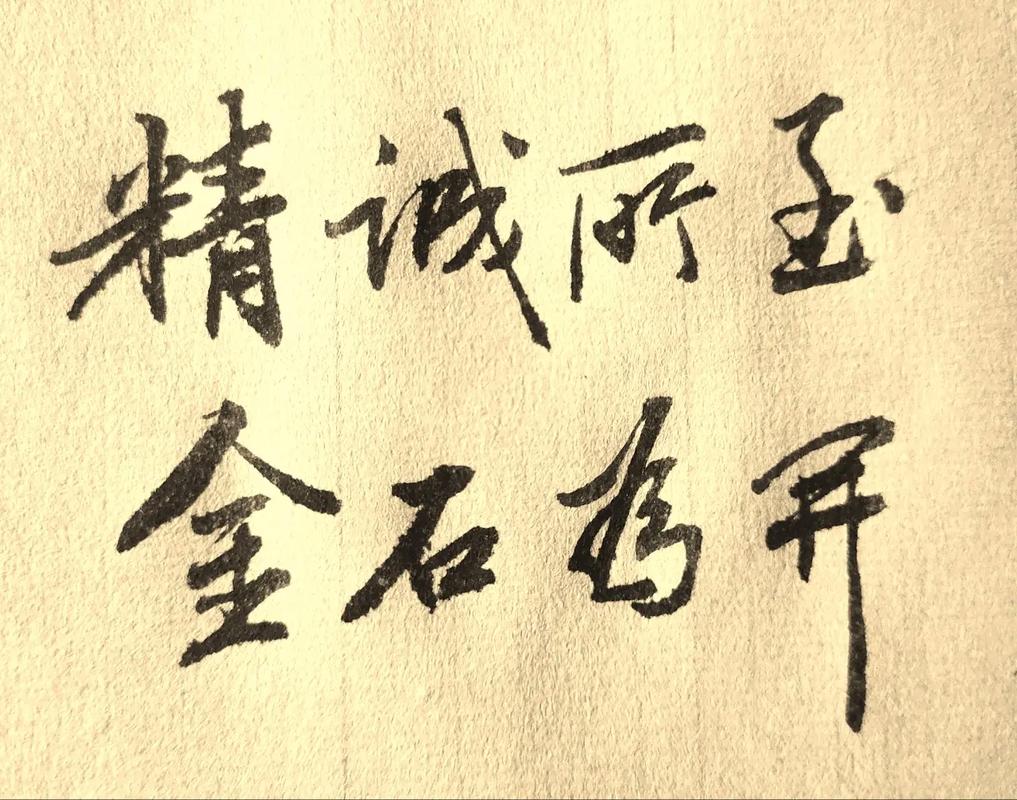 精诚所至
金石为开